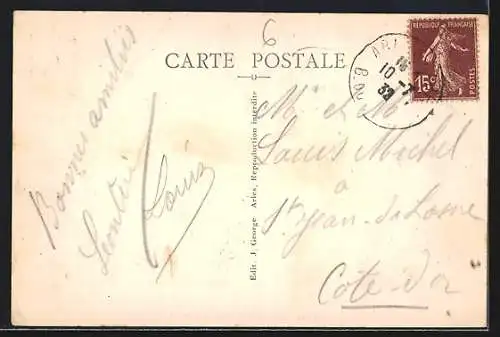 6
CARTE POSTALE
RÉPUBLIQUE FRANÇAISE
15c
POSTES
10 -7
32
Edit. J. George. Arles, Reproduction interdite
Bonnes amitiés
Léontine
Louis
Mr et Me
Louis Michel
à
St Jean-de-Losne
Côte-d'or